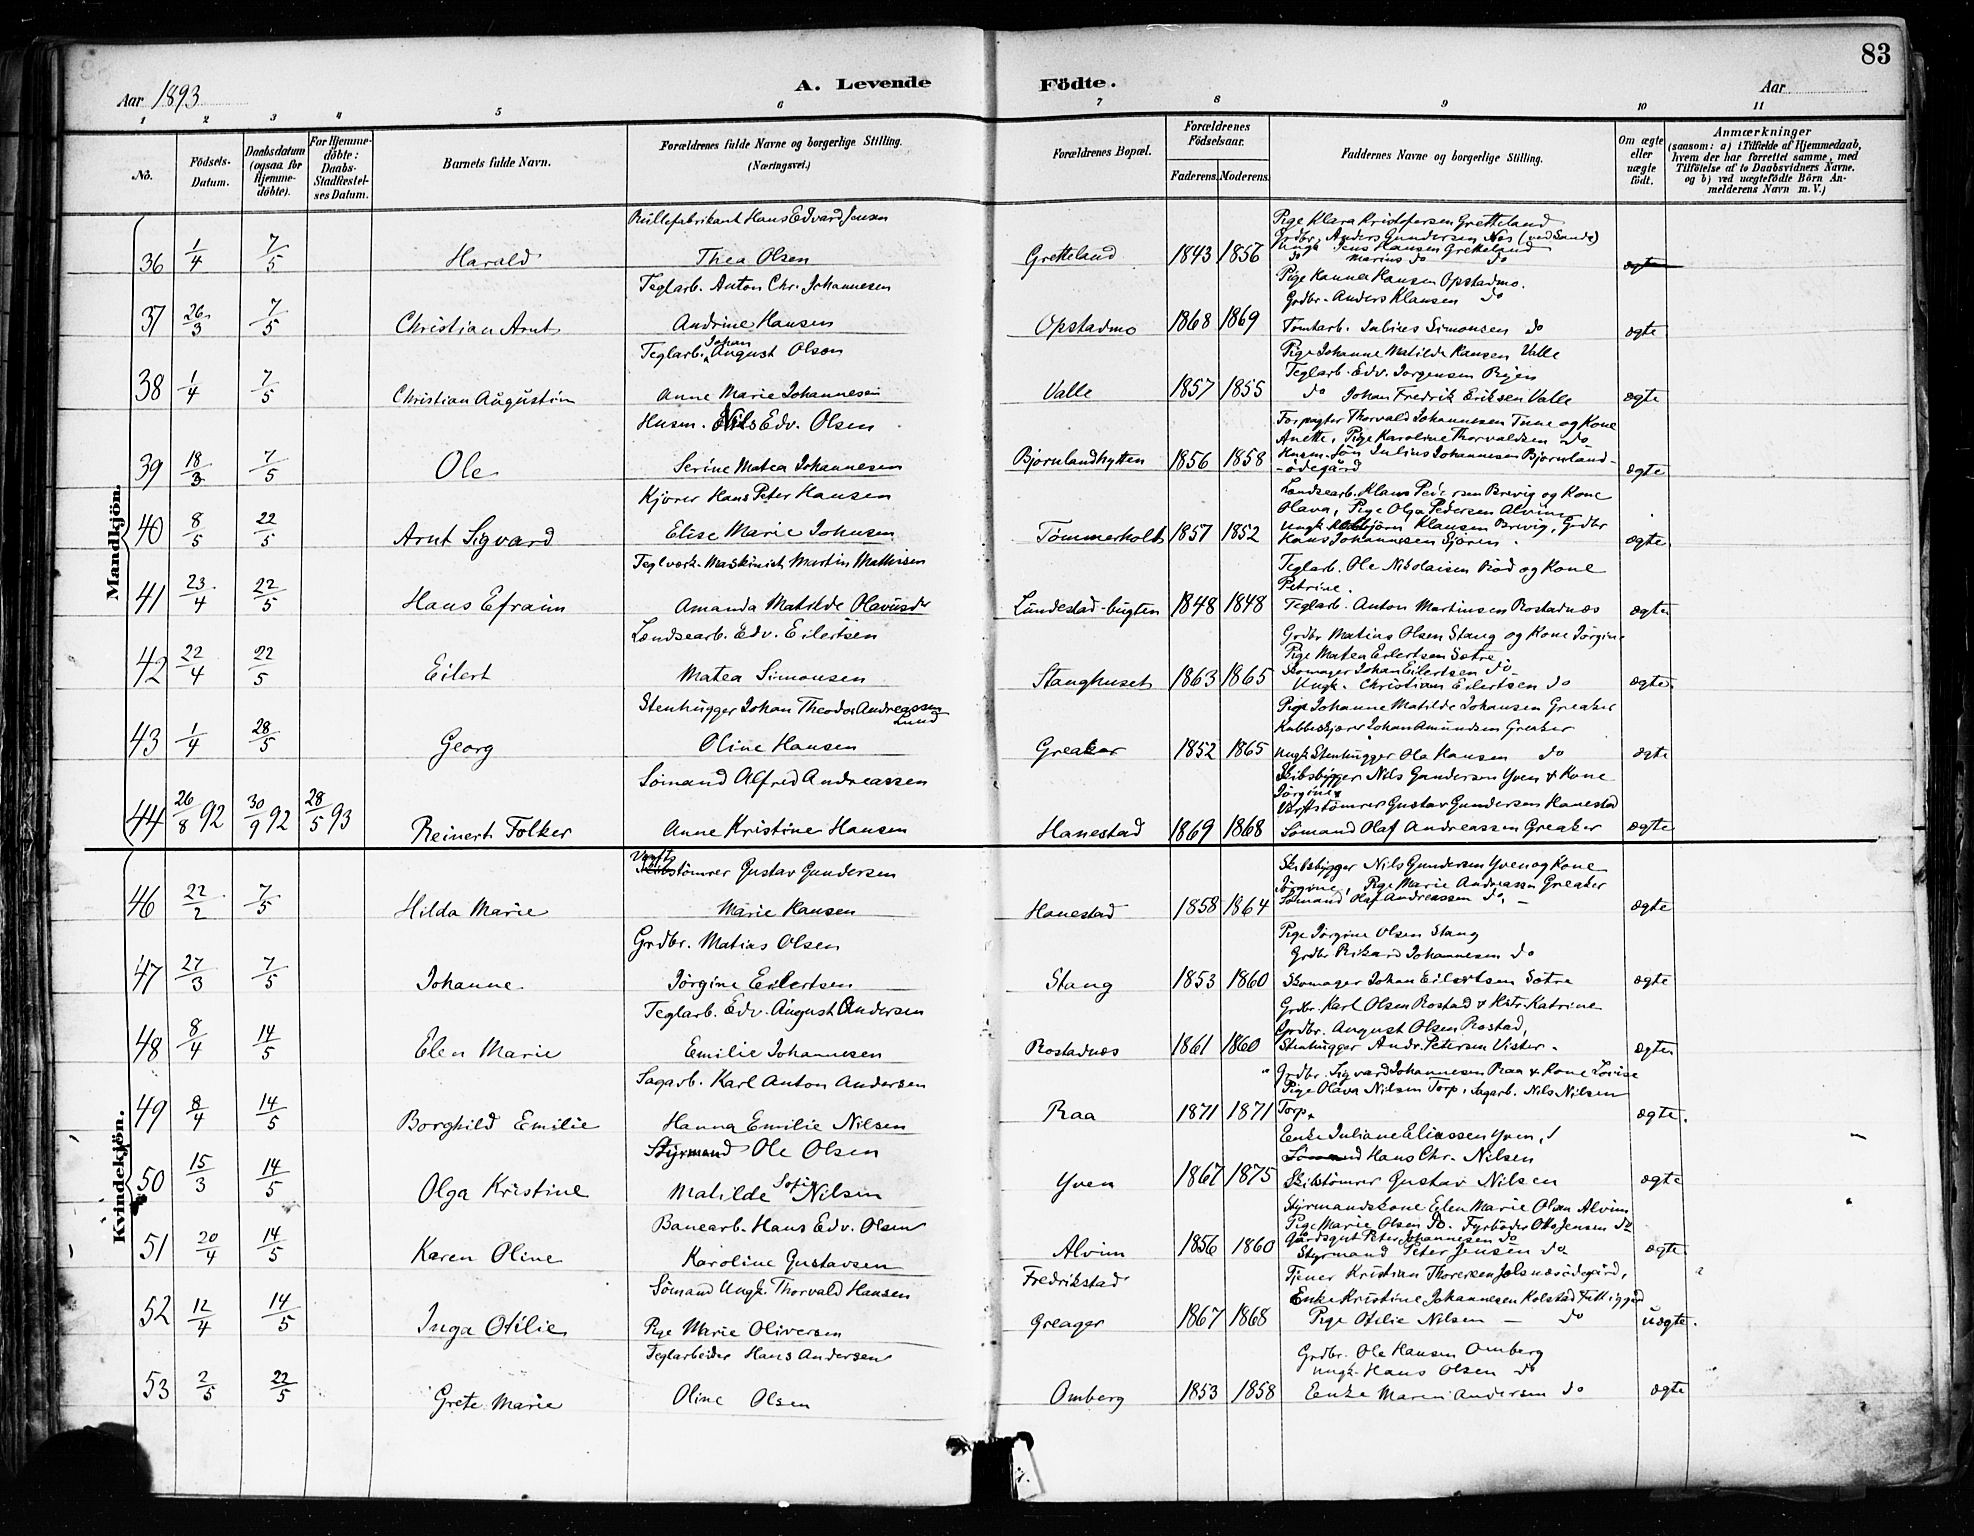 83
A. Levende Födte.
Aar 1893
Aar
1 2 3 4 5 6 7 8 9 10 11
No.
Födsels-Datum.
Daabsdatum (ogsaa for Hjemme-döbte).
For Hjemme-döbte: Daabs-Stadfæstel-ses Datum.
Barnets fulde Navn.
Forældrenes fulde Navne og borgerlige Stilling. (Næringsvei.)
Forældrenes Bopæl.
Forældrenes Födselsaar.
Faderens. Moderens.
Faddernes Navne og borgerlige Stilling.
Om ægte eller uægte födt.
Anmærkninger
(saasom: a) i Tilfælde af Hjemmedaab, hvem der har forrettet samme, med Tilföielse af to Daabsvidners Navne. og b) ved uægtefödte Börn Anmelderens Navn m. V.)
Mandkjön.
36 1/4 7/5 Harald
Hans Edvard Jensen
Thea Olsen
Gretteland 1843 1856
Pige Klara Kristofersen Gretteland
Grdbr. Anders Gundersen Nes (ved Sande)
Ungk. Jens Hansen Gretteland
do Marius do do
ægte
37 26/3 7/5 Christian Arnt
Teglarb. Anton Chr. Johannesen
Andrine Hansen
Opstadmo 1868 1869
Pige Hanna Hansen Opstadmo.
Grdbr. Anders Klausen do
Tomtarb. Julius Simonsen do
ægte
38 1/4 7/5 Christian Augustin
Teglarb. Johan August Olsen
Anne Marie Johannesen
Valle 1857 1855
Pige Johanne Matilde Hansen Valle
Teglarb. Edv. Jorgensen
do Johan Fredrik Eriksen Valle
ægte
39 18/3 7/5 Ole
Husm. Nils Edv. Olsen
Serine Matea Johannesen
Bjornlandhytten 1856 1858
Forpagter Thorvald Johannesen Tune og Kone
Anette, Pige Karoline Thorvaldsen do,
Husm. Sön Julius Johannesen Bjornland-
-ödegård
ægte
40 8/5 22/5 Arnt Sigvard
Kjörer Hans Peter Hansen
Elise Marie Johnsen
Tömmerholt 1857 1852
Lændsearb. Klaus Pedersen Brevig og Kone
Olava, Pige Olga Pedersen Alvim
Ungk. Klausen Brevig, Grdbr
Hans Johannesen
ægte
41 23/4 22/5 Hans Efraim
Teglværk-Maskinist Martin Mathisen
Amanda Matilde Olavusdr
Lundestad-bugten 1848 1848
Teglarb. Ole Nikolaisen Röd og Kone
Petrine.
Teglarb. Anton Martinsen Rostadnæs
ægte
42 22/4 22/5 Eilert
Lændsearb. Edv. Eilertsen
Matea Simonsen
Stanghuset 1863 1865
Grdbr Matias Olsen Stang og Kone Jörgine
Pige Matea Eilertsen Sætre
Skomager Johan Eilertsen do
Ungk. Christian Eilertsen do
ægte
43 1/4 28/5 Georg
Stenhugger Johan Theodor Andreassen
Lund
Oline Hansen
Greaker 1852 1865
Pige Johanne Matilde Johansen Greaker
Johan Amundsen Greaker
Ungk Stenhugger Ole Hansen do
ægte
44 26/8 92 30/9 92 28/5 93 Reinert Folker
Sömand Alfred Andreassen
Anne Kristine Hansen
Hanestad 1869 1868
Skibsbygger Nils Gundersen Yven & Kone
Jörgine,
Værftstömrer Gustav Gundersen Hanestad
Sömand Olaf Andreassen Greaker
ægte
Kvindekjön.
46 22/2 7/5 Hilda Marie
Værftstömrer Gustav Gundersen
Marie Hansen
Hanestad 1858 1864
Skibsbygger Nils Gundersen Yven og Kone
Jörgine, Pige Marie Andreassen Greaker
Sömand Olaf Andreassen do.
ægte
47 27/3 7/5 Johanne
Grdbr. Matias Olsen
Jörgine Eilertsen
Stang 1853 1860
Pige Jörgine Olsen Stang
Grdbr Rikard Johannesen do
Skomager Johan Eilertsen Sætre
ægte
48 8/4 14/5 Elen Marie
Teglarb. Edv. August Andersen
Emilie Johannesen
Rostadnæs 1861 1860
Grdbr. Karl Olsen Rostad & Hstr. Katrine
Grdbr. August Olsen Rostad,
Stenhugger Andr. Petersen Vister
ægte
49 8/4 14/5 Borghild Emilie
Sagarb. Karl Anton Andersen
Hanna Emilie Nilsen
Raa 1871 1871
Grdbr. Sigvard Johannesen Raa & Kone Lovise
Pige Olava Nilsen Torp, Sagarb. Nils Nilsen
Torp
ægte.
50 15/3 14/5 Olga Kristine
Styrmand Ole Olsen
Matilde Sofie Nilsen
Yven 1867 1875
Enke Juliane Eliassen Yven,
Sömand Hans Chr. Nilsen
Skibstömrer Gustav Nilsen
ægte
51 20/4 14/5 Karen Oline
Banearb. Hans Edv. Olsen
Karoline Gustavsen
Alvim 1856 1860
Styrmandskone Elen Marie Olsen Alvim
Pige Marie Olsen Do. Fyrböder Otto Jensen do
Gårdsgut Peter Johannesen do
Styrmand Peter Jensen do
ægte
52 12/4 14/5 Inga Otilie
Sömand Ungk. Thorvald Hansen
Pige Marie Oliversen
Fredrikstad
Greager 1867 1868
Tjener Kristian Thoresen
Enke Kristine Johannesen Kolstad
Pige Otilie Nilsen — do
uægte.
53 2/5 22/5 Grete Marie
Teglarbeider Hans Andersen
Oline Olsen
Omberg 1853 1858
Grdbr. Ole Hansen Omberg
Ungk. Hans Olsen do
Enke Maren Andersen do
ægte